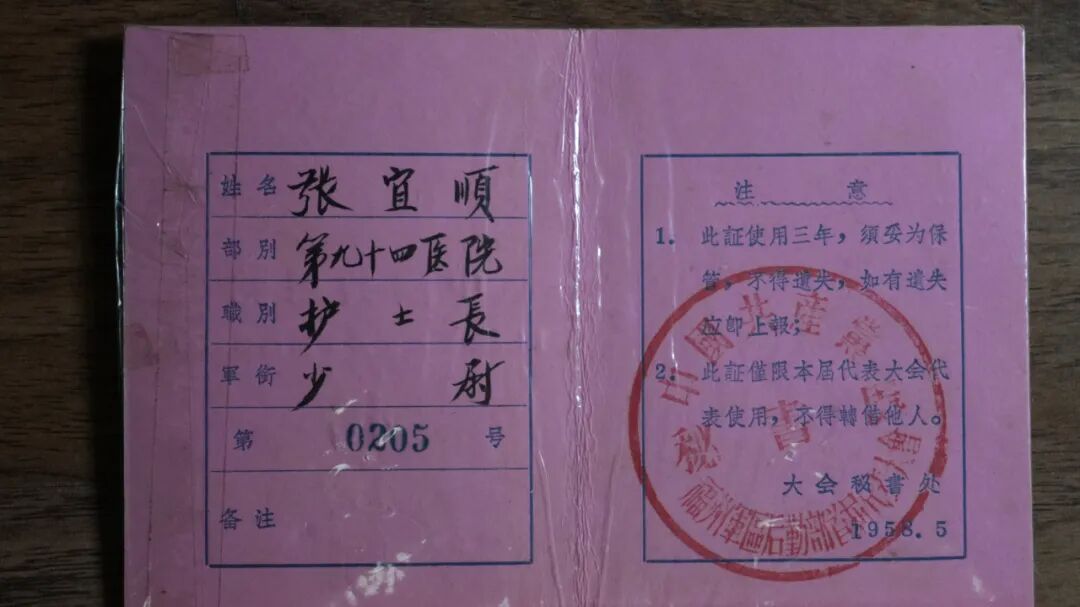 姓名 张宜順
部別 第九十四医院
職別 护士長
軍銜 少尉
第 0205 号
备注
注意
1. 此証使用三年，須妥为保
管，不得遺失，如有遺失
立即上報；
2. 此証僅限本届代表大会代
表使用，不得轉借他人。
大会秘書处
1958.5
中國共產黨
秘書處